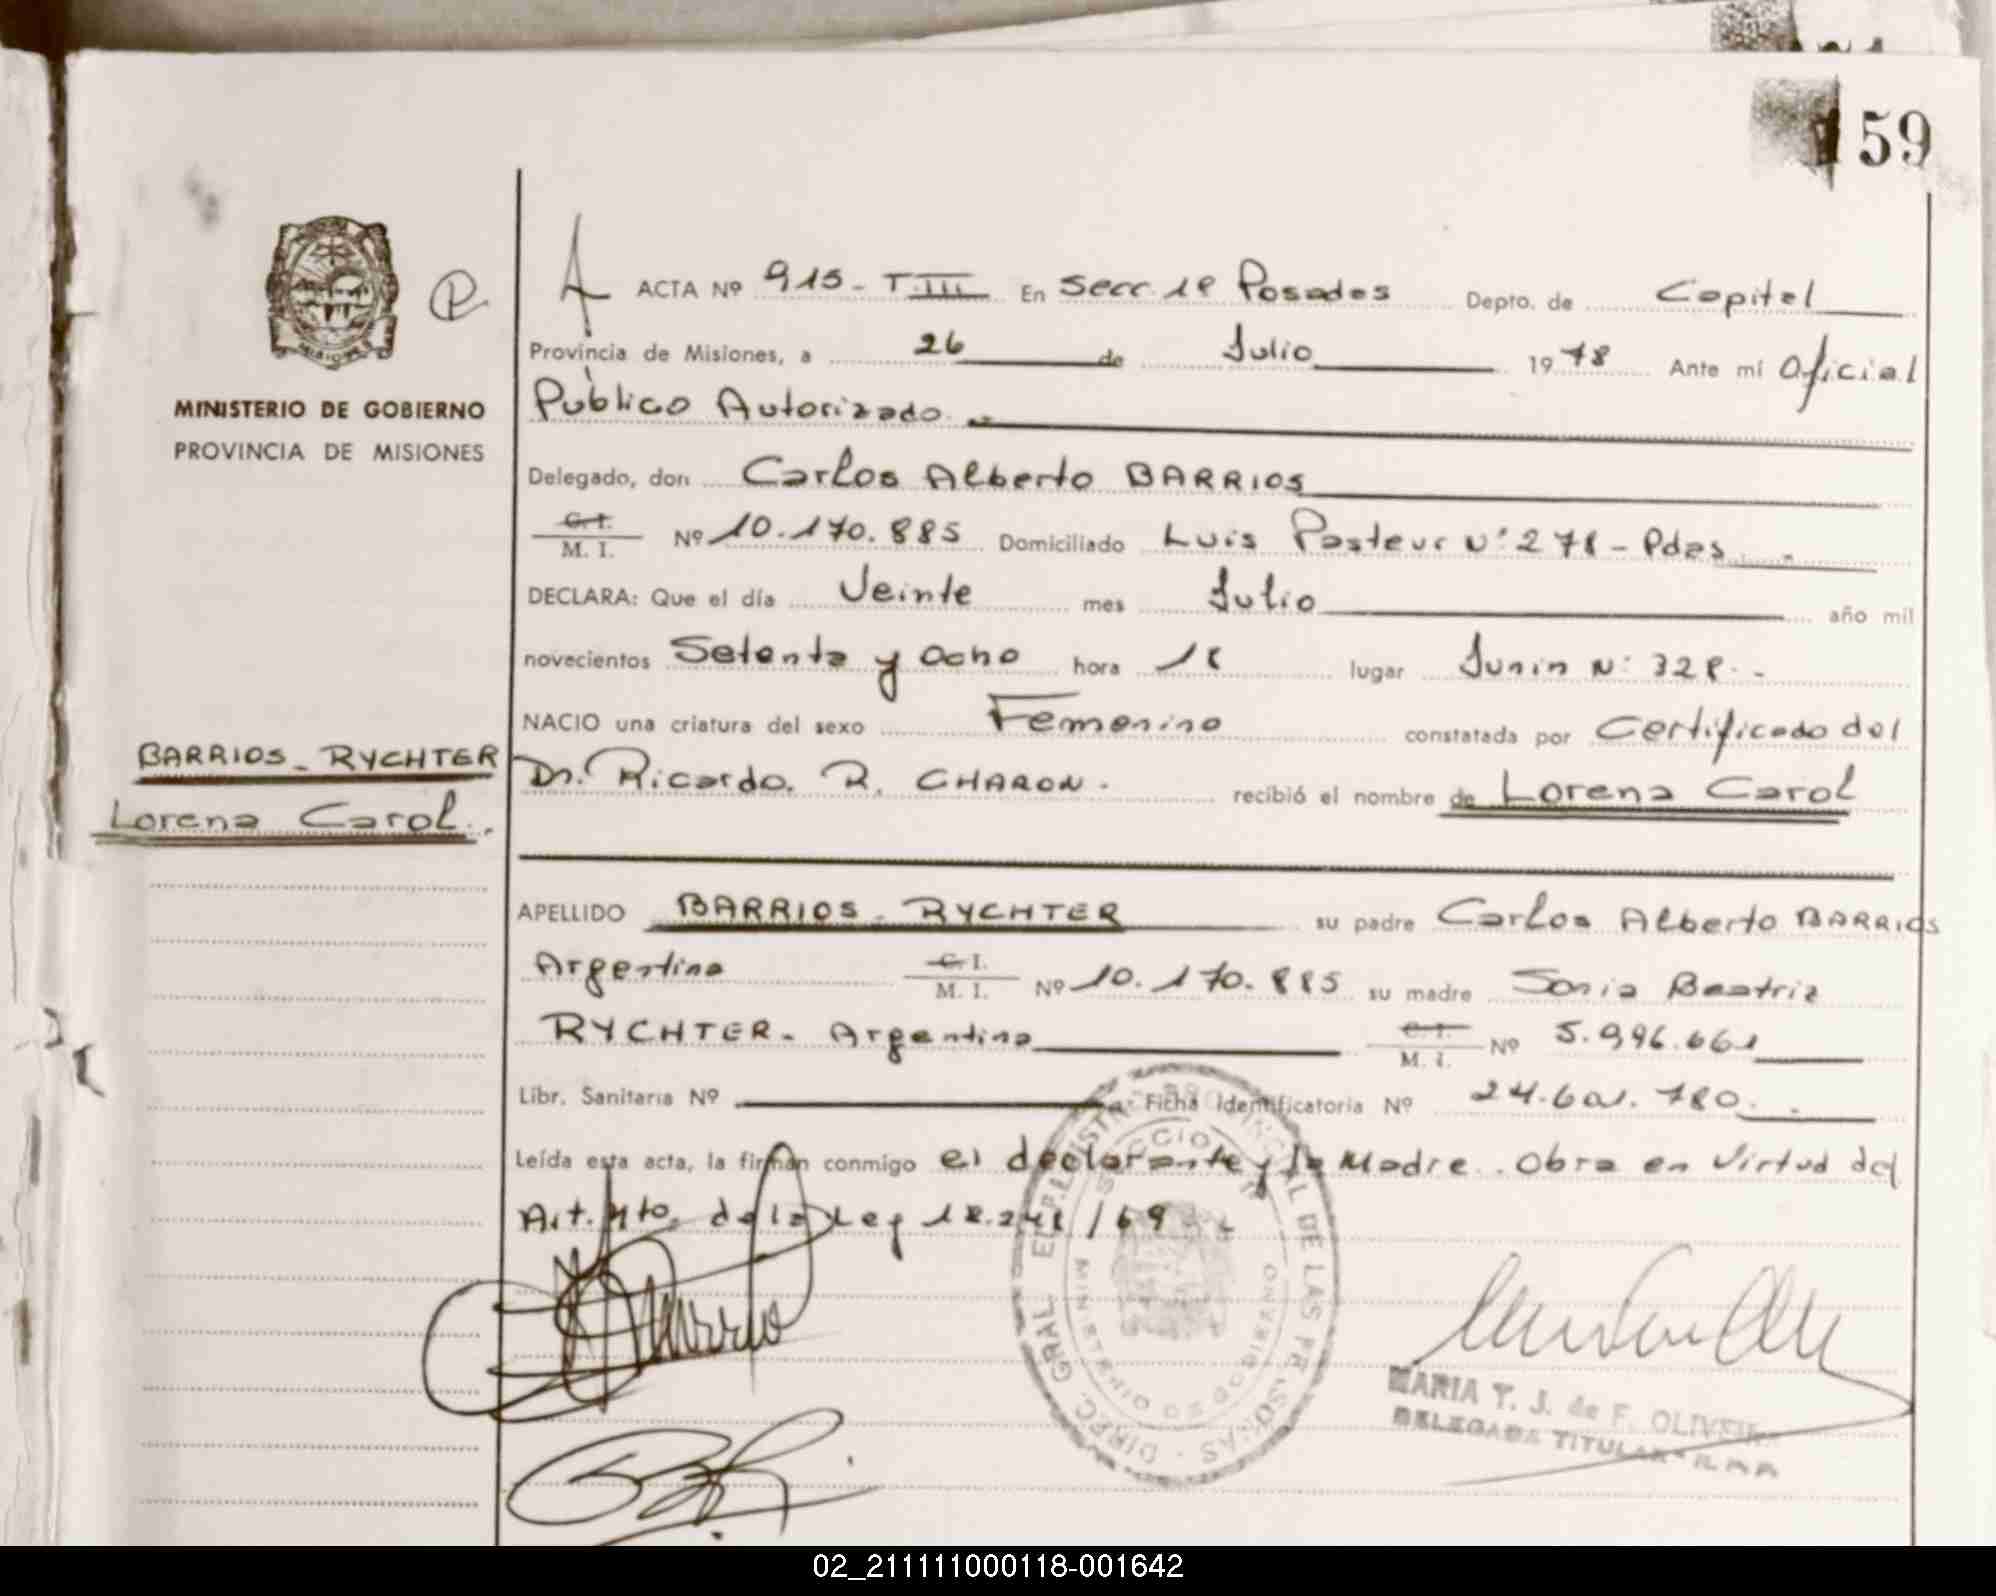 159
MISIONES
MINISTERIO DE GOBIERNO
PROVINCIA DE MISIONES
BARRIOS - RYCHTER
Lorena Carol.
ACTA Nº 915 - T. III En Secc. 1ª Posadas Depto. de Capital
Provincia de Misiones, a 26 de Julio 1978 Ante mí Oficial
Público Autorizado.
Delegado, don Carlos Alberto BARRIOS
C. I.
M. I. Nº 10.170.885 Domiciliado Luis Pasteur Nº 278 - Pdas.
DECLARA: Que el día Veinte mes Julio año mil
novecientos Setenta y Ocho hora 18 lugar Junin Nº 328.-
NACIO una criatura del sexo Femenino constatada por Certificado del
Dr. Ricardo. R. CHARON. recibió el nombre de Lorena Carol
APELLIDO BARRIOS - RYCHTER su padre Carlos Alberto BARRIOS
Argentino C. I. M. I. Nº 10.170.885 su madre Sonia Beatriz
RYCHTER - Argentina C. I. M. I. Nº 5.996.661
Libr. Sanitaria Nº Ficha Identificatoria Nº 24.601.780.
Leída esta acta, la firman conmigo el declarante y la Madre. Obra en Virtud del
Art. 4to. de la Ley 18.248/69
MARIA T. J. de F. OLIVEIRA
DELEGADA TITULAR
02_211111000118-001642